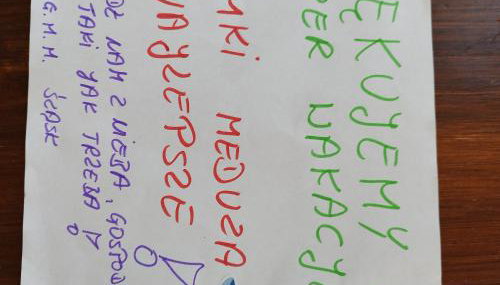 ĘKUJEMY
PER WAKACJ
MKI MEDUZA
NAJLEPSZE !
DŹ NAM Z NIEBA, GOSPOD
TAKI JAK TRZEBA !
G. M. M. ŚLĄSK